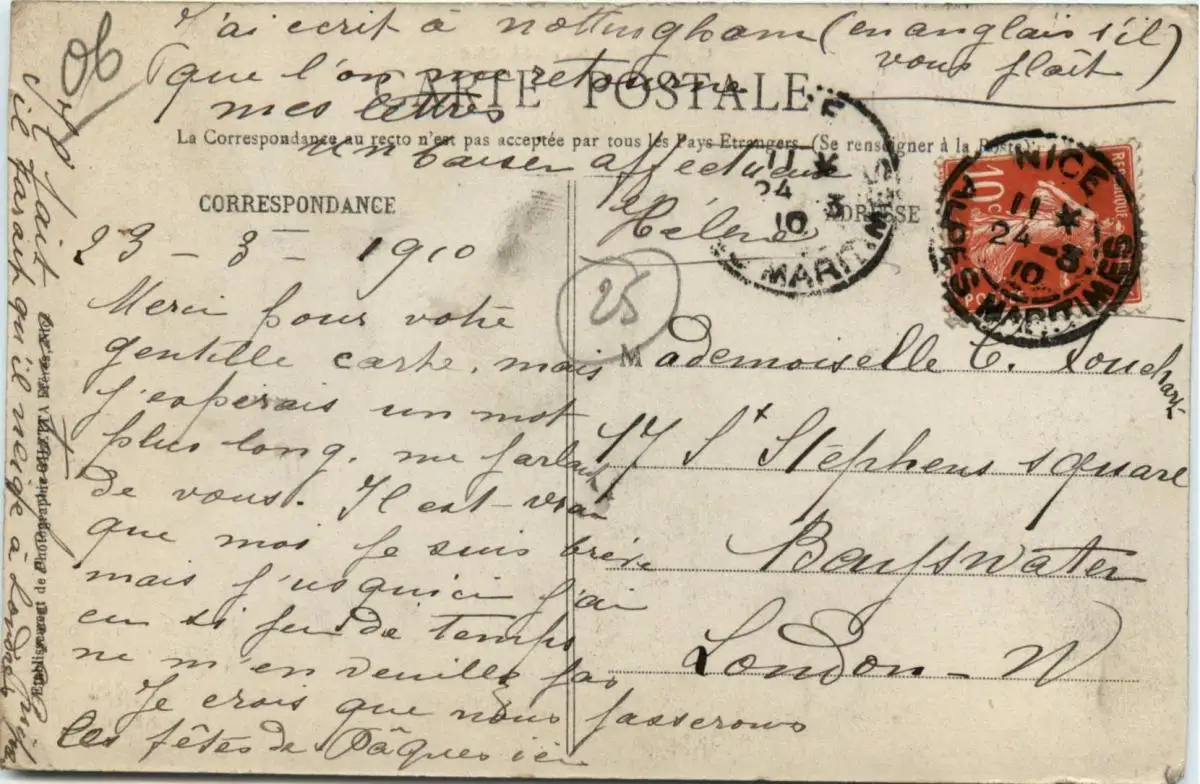 J'ai ecrit à nottingham (en anglais s'il
vous plait)
que l'on me retourne
mes lettres
un baiser affectueux
Hélène
CARTE POSTALE
La Correspondance au recto n'est pas acceptée par tous les Pays Etrangers. (Se renseigner à la Poste)
CORRESPONDANCE
ADRESSE
23 - 3 - 1910
Merci pour votre
gentille carte, mais
j'esperais un mot
plus long, me parlant
de vous. Il est vrai
que moi je suis brève
mais j'usqu'ici j'ai
eu si peu de temps
ne m'en veuillez pas
Je crois que nous passerons
les fêtes de Pâques ici
il fait
il parait qu'il neige à Londres
25
Mademoiselle C. Louchart
17 St Stephens square
Bayswater
London - W
NICE
11 *
24 - 3
10
ALPES MARITIMES
11 *
24 3
10
MARITIM
10c
REPUBLIQUE
Etablissement de Photographie